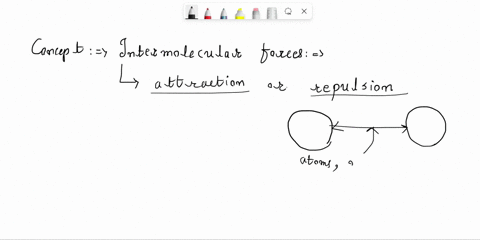 Concept :=> Intermolecular forces :=>
attraction or repulsion
atoms,